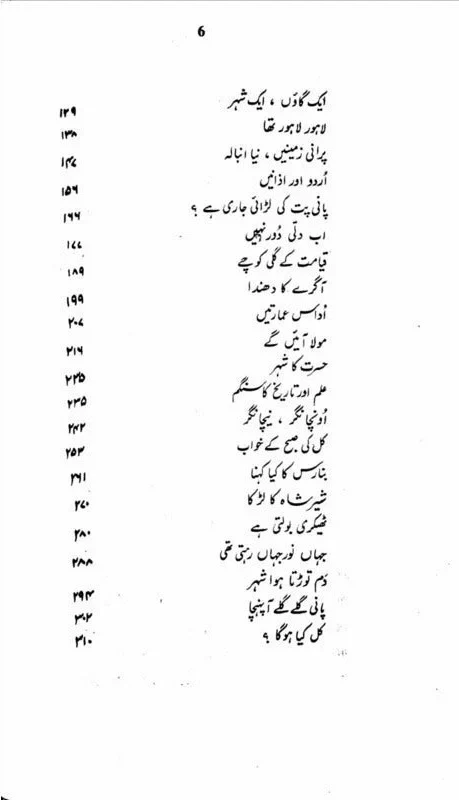 6
ایک گاؤں ، ایک شہر ۱۲۹
لاہور لاہور تھا ۱۳۸
پرانی زمینیں ، نیا انبالہ ۱۴۷
اُردو اور اذانیں ۱۵۶
پانی پت کی لڑائی جاری ہے ؟ ۱۶۶
اب دلّی دُور نہیں ۱۷۷
قیامت کے گلی کوچے ۱۸۹
آگرے کا دھندا ۱۹۹
اُداس عمارتیں ۲۰۷
مولا آئیں گے ۲۱۶
حسرت کا شہر ۲۲۵
علم اور تاریخ کا سنگم ۲۳۵
اُونچا نگر ، نیچا نگر ۲۴۲
کل کی صبح کے خواب ۲۵۳
بنارس کا کیا کہنا ۲۶۱
شیر شاہ کا لڑکا ۲۷۰
ٹھیکری بولتی ہے ۲۸۰
جہاں نور جہاں رہتی تھی ۲۸۸
دَم توڑتا ہوا شہر ۲۹۴
پانی گلے گلے آ پہنچا ۳۰۲
کل کیا ہوگا ؟ ۳۱۰